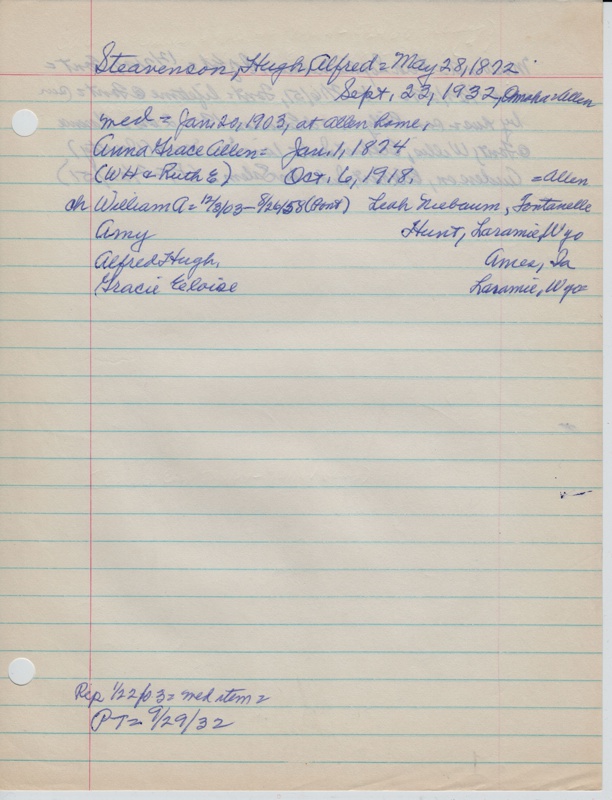 Steavenson, Hugh Alfred = May 28, 1872
Sept. 23, 1932, Omaha = Allen
med = Jan. 20, 1903, at Allen home,
Anna Grace Allen = Jan. 1, 1874
(WH & Ruth E) Oct. 6, 1918. = Allen
ch William A = 12/3/03 - 8/26/58 (Font) Leah Niebaum, Fontanelle
Amy Hunt, Laramie, Wyo
Alfred Hugh, Ames, Ia
Gracie Eeloise Laramie, Wyo =
Rep 1/22/03 = med item =
PT = 9/29/32